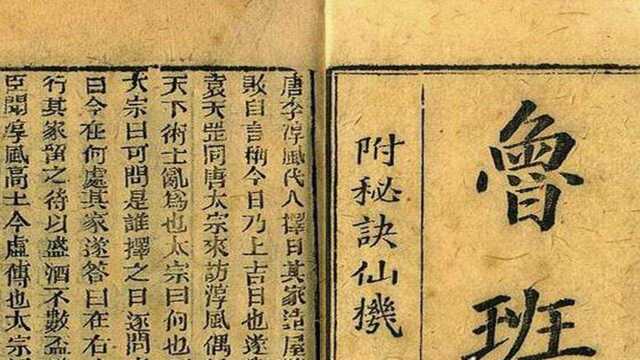 魯班
附秘訣仙機
唐李淳風代人擇日其家造屋
敗自言稱今日乃上吉日也遂
袁天罡同唐太宗來訪淳風偶
天下術士亂為也太宗曰何也
太宗曰可問是誰擇之日遂問
曰今在何處其家遂答曰在右
行其家留之待以盛酒不數盃
臣聞淳風高士今虛傳也太宗